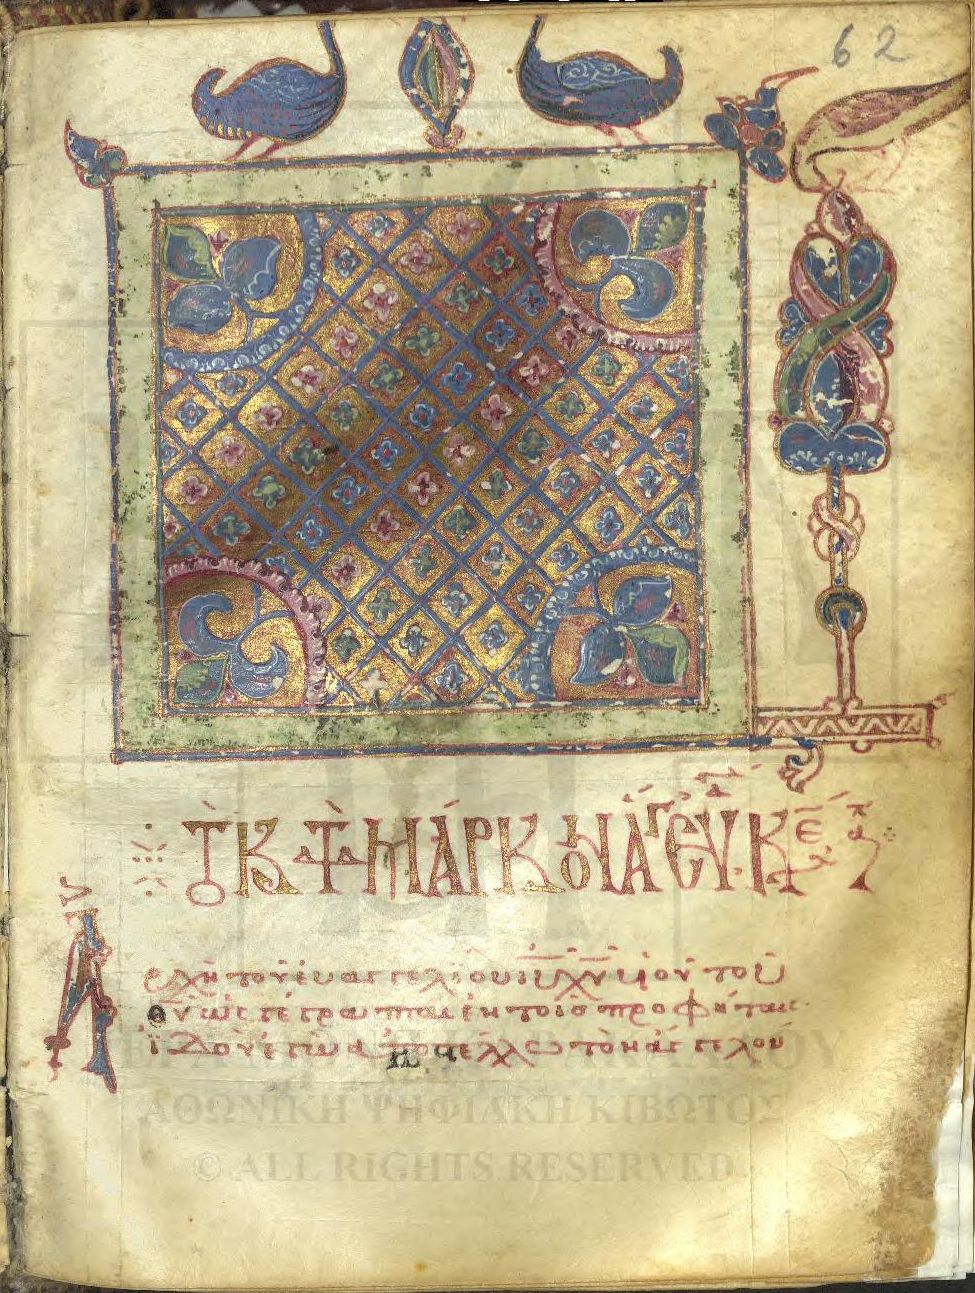 62
Τὸ κατὰ Μάρκον ἅγ εὐ κε α
Αρχὴ τοῦ εὐαγγελίου ιυ χυ υἱοῦ τοῦ
θυ ὡς γέγραπται ἐν τοῖς προφήταις
ἰδοὺ ἐγὼ ἀποστέλλω τὸν ἄγγελόν
ΑΘΩΝΙΚΗ ΨΗΦΙΑΚΗ ΚΙΒΩΤΟΣ
© ALL RIGHTS RESERVED